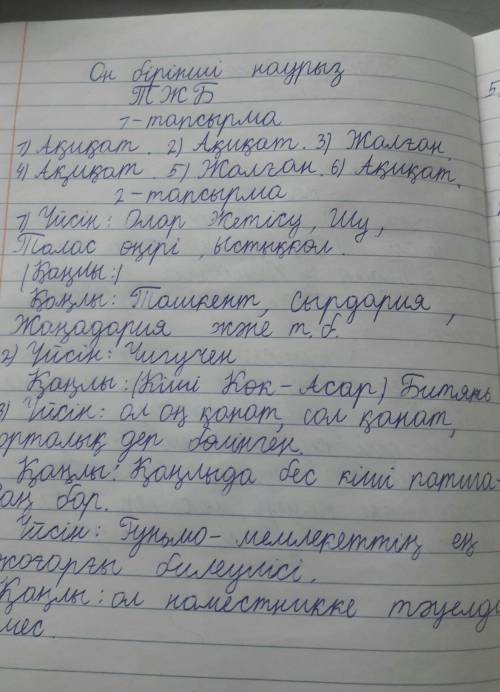 Он бірінші наурыз
ТЖБ
1-тапсырма
1) Ақиқат. 2) Ақиқат. 3) Жалған.
4) Ақиқат. 5) Жалған. 6) Ақиқат.
2-тапсырма
1) Үйсін: Олар Жетісу, Шу,
Талас өңірі, Ыстықкөл.
(Қаңлы:)
Қаңлы: Ташкент, Сырдария,
Жаңадария және т.б.
2) Үйсін: Чигучен
Қаңлы: (Кіші Көк-Асар) Битянь
3) Үйсін: ол оң қанат, сол қанат,
орталық деп бөлінген.
Қаңлы: Қаңлыда бес кіші патша-
бар.
Үйсін: Гуньмо-мемлекеттің ең
жоғарғы билеушісі.
Қаңлы: ол наместникке тәуелді
мес.
5